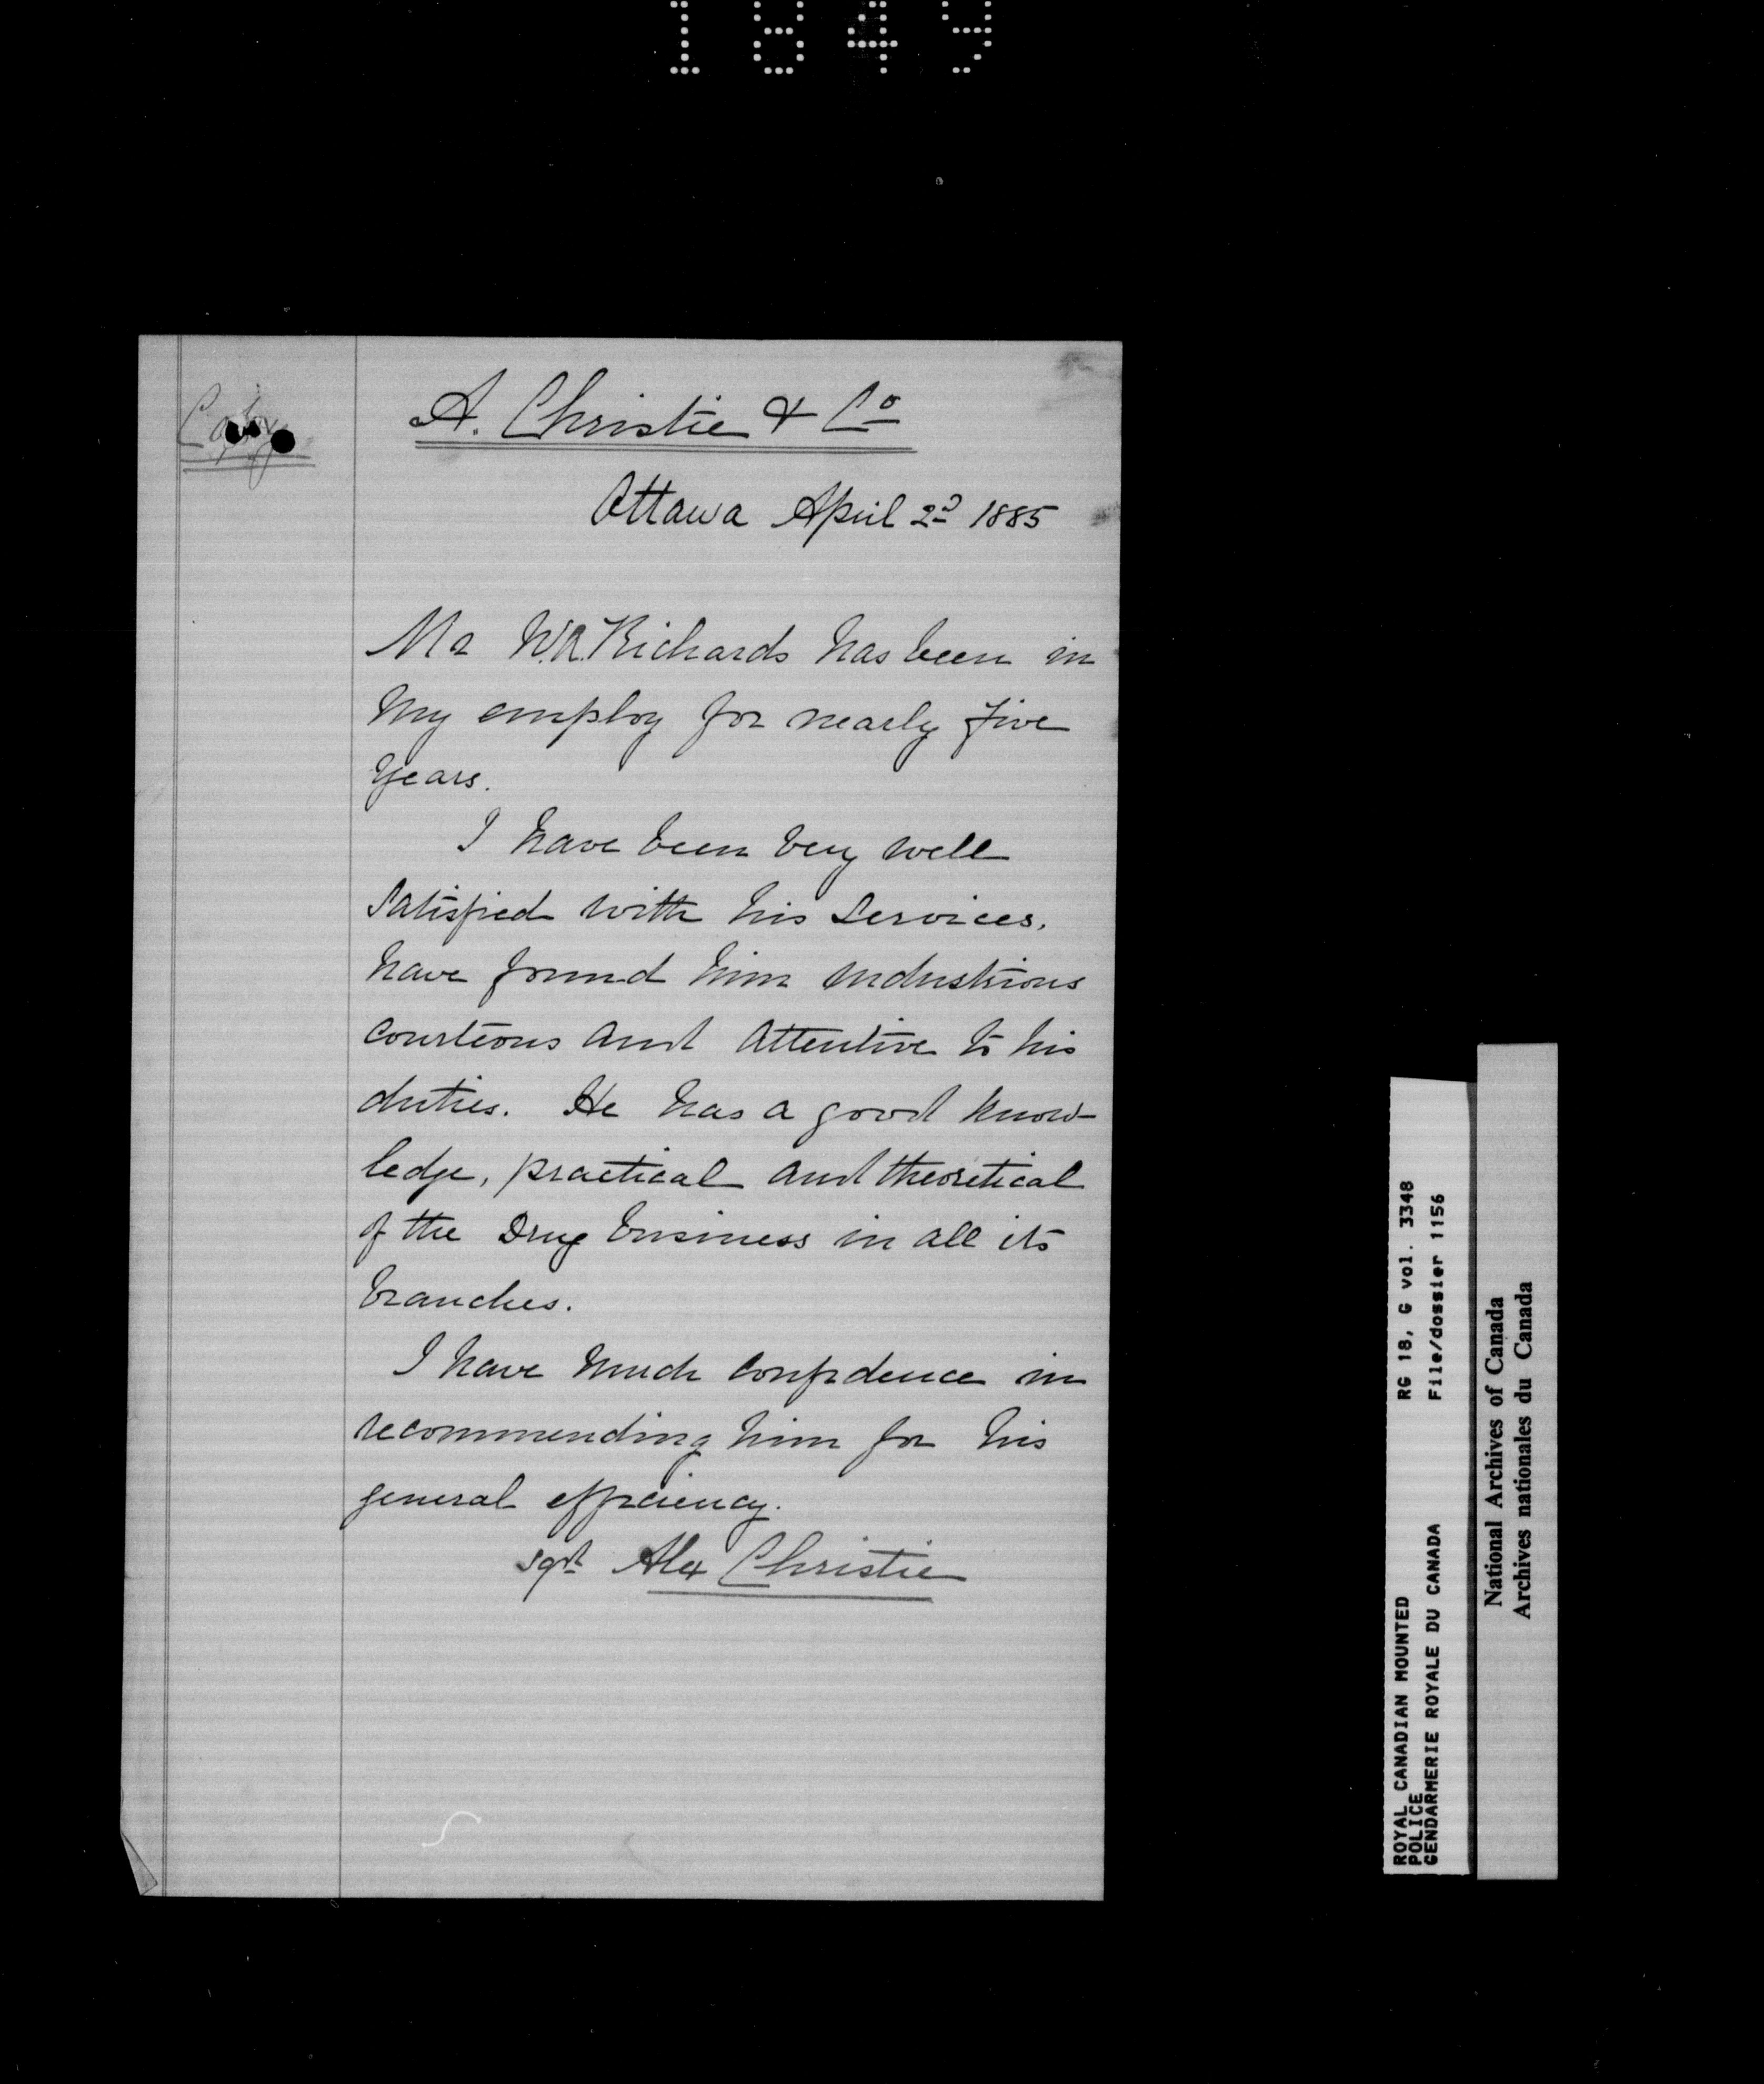 1849
Copy
A. Christie & Co
Ottawa April 2nd 1885
Mr W.R. Richards has been in
my employ for nearly five
years.
I have been very well
satisfied with his services,
have found him industrious
courteous and attentive to his
duties. He has a good know-
ledge, practical and theoretical
of the Drug business in all its
branches.
I have much confidence in
recommending him for his
general efficiency.
sgd Alex Christie
ROYAL CANADIAN MOUNTED
POLICE
GENDARMERIE ROYALE DU CANADA
RG 18, G vol. 3348
File/dossier 1156
National Archives of Canada
Archives nationales du Canada